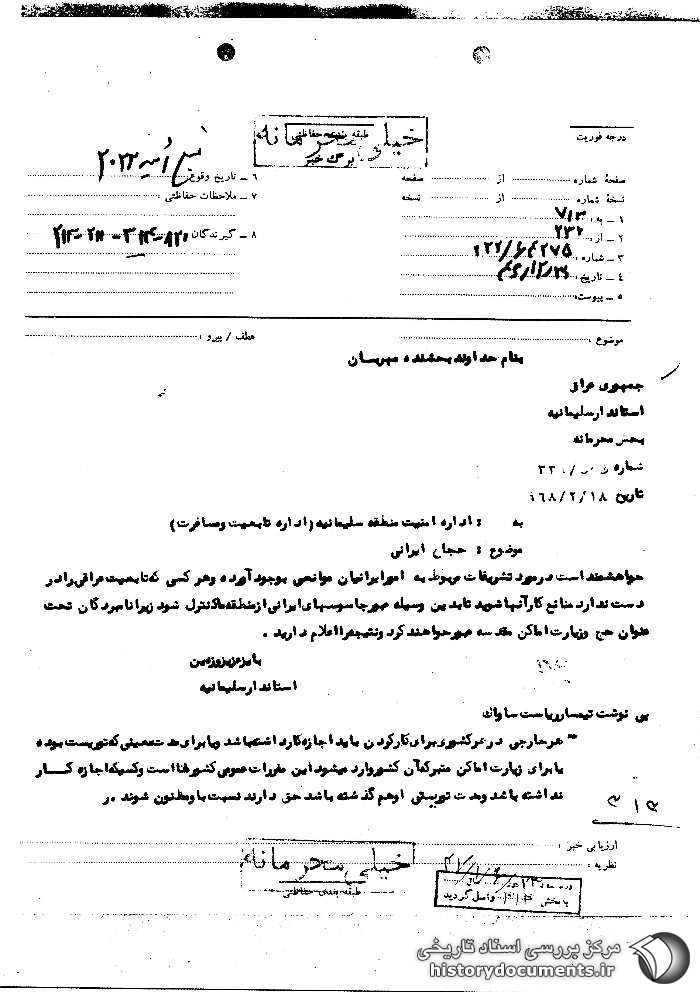 خیلی محرمانه
طبقه بندی حفاظتی
برگ خبر
درجه فوریت
صفحهٔ شماره از صفحه
نسخهٔ شماره از نسخه
۱ ـ به : ۷۱۳
۲ ـ از : ۲۳۲
۳ ـ شماره :
۴ ـ تاریخ :
۵ ـ پیوست :
۶ ـ تاریخ وقوع
۷ ـ ملاحظات حفاظتی :
۸ ـ گیرندگان
موضوع :
عطف / پیرو :
بنام خداوند بخشنده مهربان
جمهوری عراق
استاندار سلیمانیه
بخش محرمانه
شماره
تاریخ ۱۸/۲/۶۸
به : اداره امنیت منطقه سلیمانیه (اداره تابعیت ومسافرت)
موضوع : حجاج ایرانی
خواهشمند است در مورد تشریفات مربوط به امور ایرانیان موانعی بوجود آورده و هر کسی که تابعیت عراقی را در
دست ندارد مانع کار آنها شوید تا بدین وسیله عبور جاسوسهای ایرانی از منطقه ما کنترل شود زیرا نامبردگان تحت
عنوان حج و زیارت اماکن مقدسه عبور خواهند کرد و نتیجه را اعلام دارید .
استاندار سلیمانیه
پی نوشت تیمسار ریاست ساواک
" هر خارجی در هر کشوری برای کار کردن باید اجازه کار داشته باشد ویا برای مدت معینی که توریست بوده
یا برای زیارت اماکن متبرکه آن کشور وارد میشود این مقررات عمومی کشورها است و کسیکه اجازه کار
نداشته باشد و مدت توریستی او هم گذشته باشد حق دارند نسبت باو مظنون شوند . ر
۳۱۵
ارزیابی خبر :
نظریه :
خیلی محرمانه
طبقه بندی حفاظتی
به بخش واصل گردید
مرکز بررسی اسناد تاریخی
historydocuments.ir